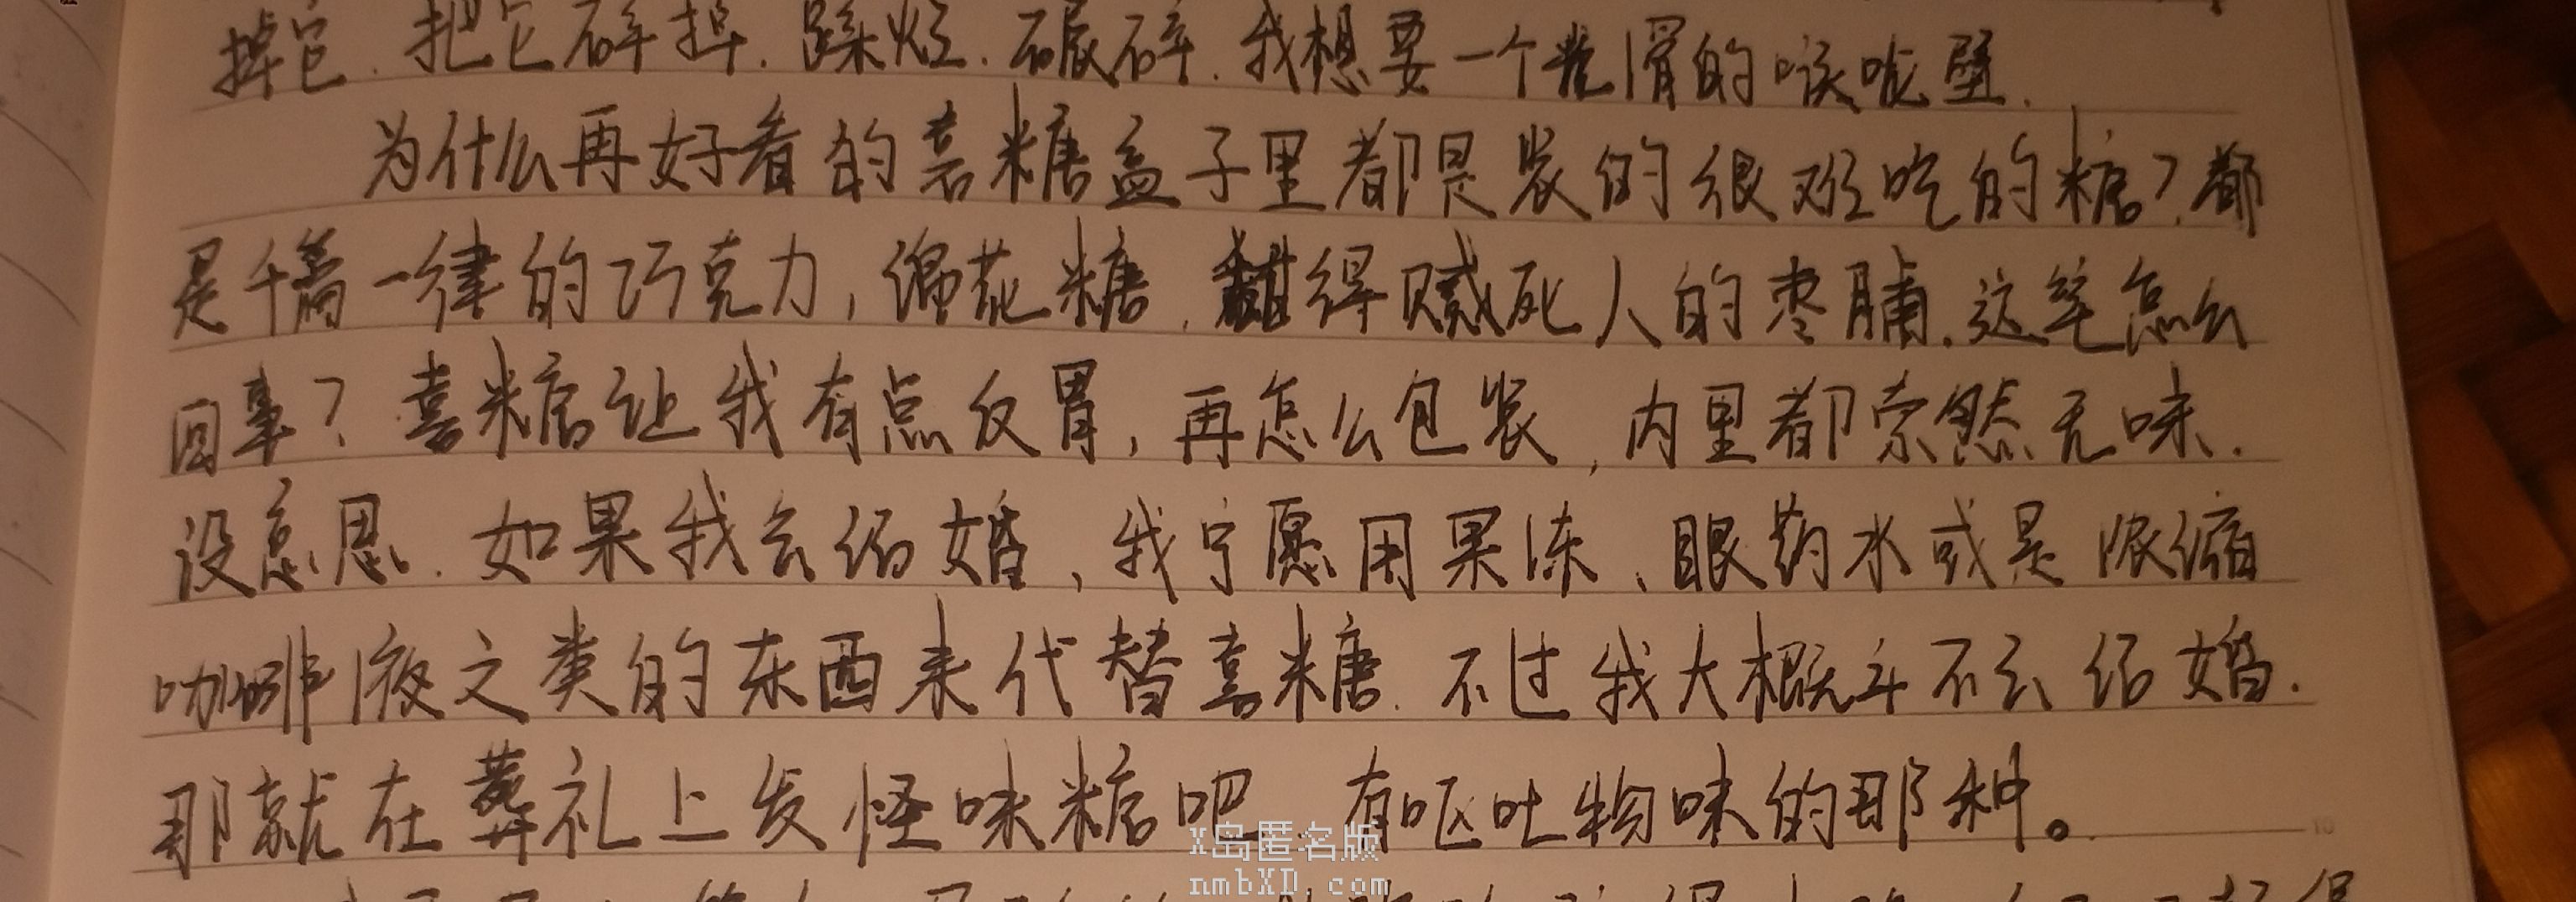 掉它.把它碎掉.踩烂.碾碎.我想要一个光滑的喉咙壁.
为什么再好看的喜糖盒子里都是装的很难吃的糖?都
是千篇一律的巧克力,棉花糖,甜得腻死人的枣脯.这算怎么
回事?喜糖让我有点反胃,再怎么包装,内里都索然无味.
没意思.如果我会结婚,我宁愿用果冻、眼药水或是浓缩
咖啡液之类的东西来代替喜糖.不过我大概率不会结婚.
那就在葬礼上发怪味糖吧.有呕吐物味的那种。
X岛匿名版
nmbXD.com
10